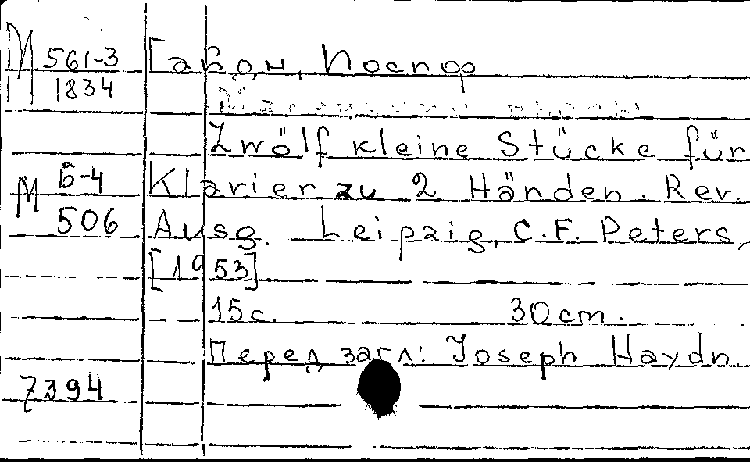 М 561-3 Гайдн, Иосиф
1834
Zwölf kleine Stücke für
М Б-4 Klavier zu 2 Händen. Rev.
506 Ausg. Leipzig, C. F. Peters,
[1953]
15 с. 30 cm.
Перед загл: Joseph Haydn.
7394